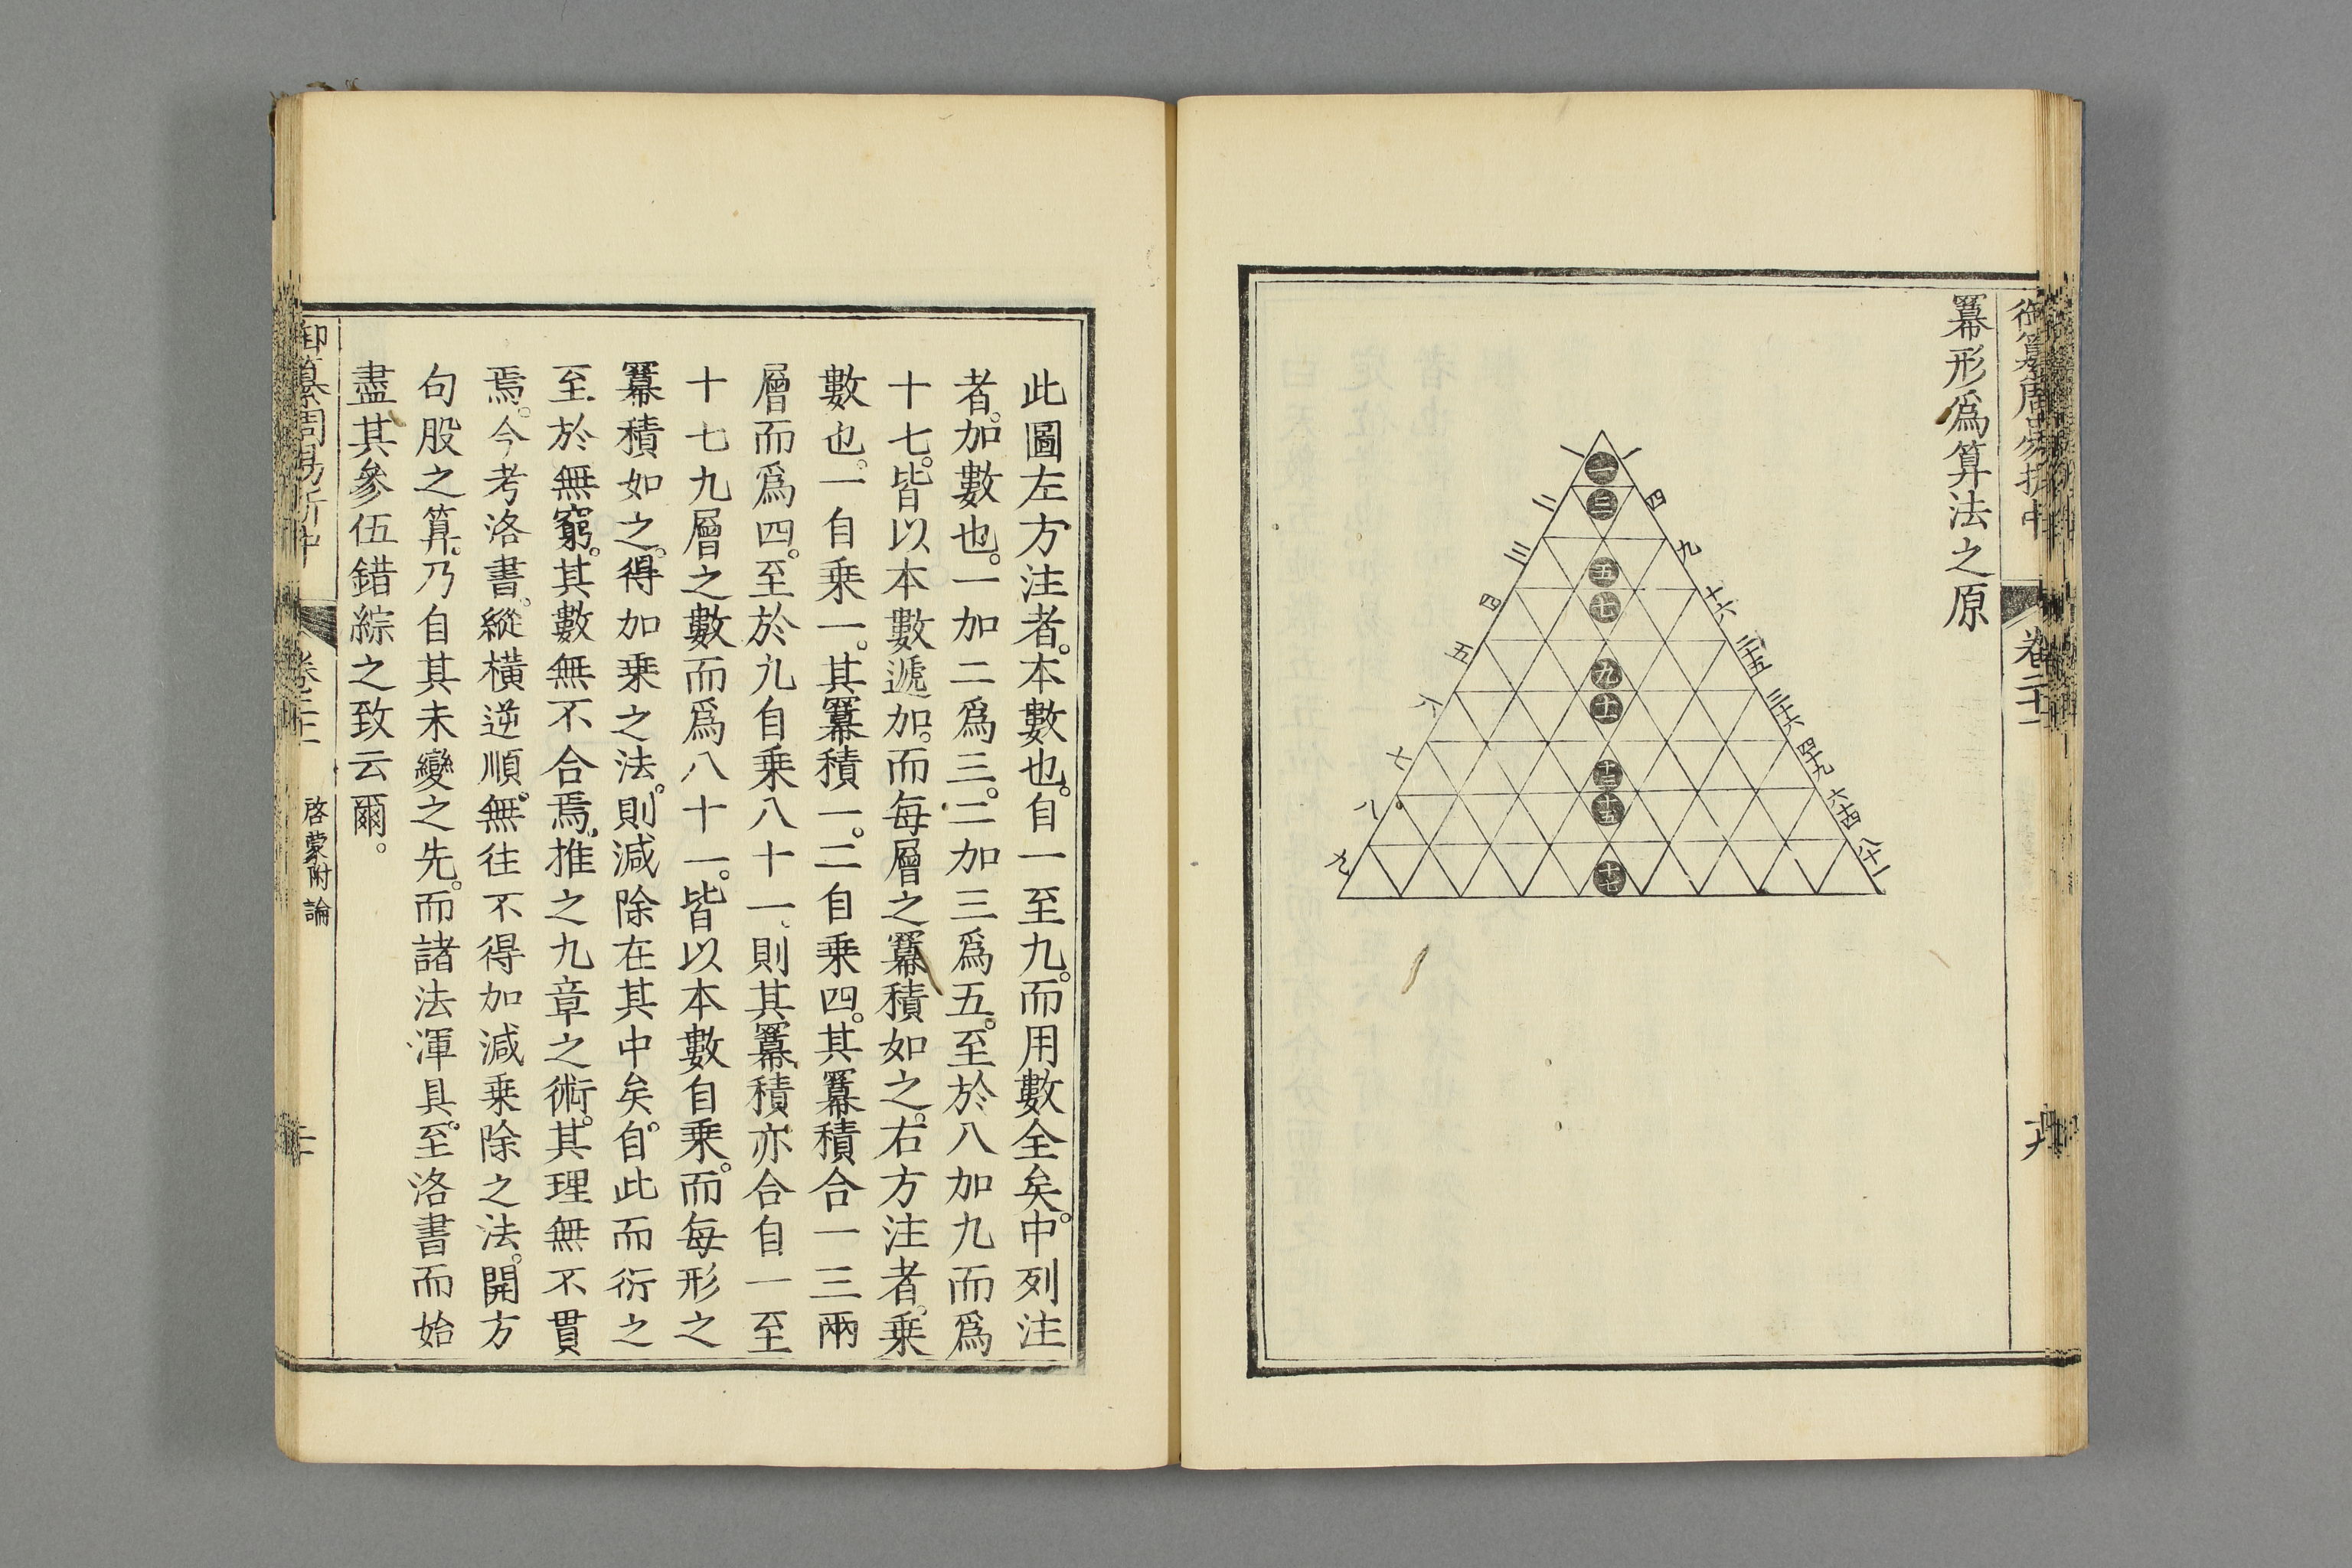 御纂周易折中
卷二十一
十九
冪形爲算法之原
一
二
三
四
五
六
七
八
九
一
三
五
七
九
十一
十三
十五
十七
一
四
九
十六
二十五
三十六
四十九
六十四
八十一
此圖左方注者。本數也。自一至九。而用數全矣。中列注
者。加數也。一加二爲三。二加三爲五。至於八加九而爲
十七。皆以本數遞加。而每層之冪積如之。右方注者。乗
數也。一自乗一。其冪積一。二自乗四。其冪積合一三兩
層而爲四。至於九自乗八十一、則其冪積亦合自一至
十七九層之數而爲八十一。皆以本數自乗。而每形之
冪積如之。得加乗之法。則減除在其中矣。自此而衍之
至於無窮。其數無不合焉。推之九章之術。其理無不貫
焉。今考洛書。縱橫逆順。無往不得加減乗除之法。開方
句股之算。乃自其未變之先。而諸法渾具。至洛書而始
盡其參伍錯綜之致云爾。
御纂周易折中
卷二十一
啓蒙附論
二十